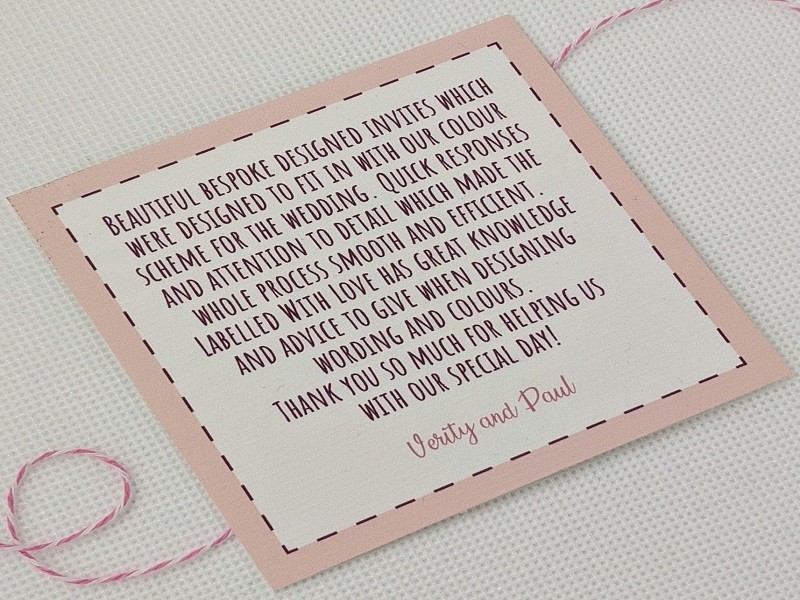 Beautiful bespoke designed invites which
were designed to fit in with our colour
scheme for the wedding. Quick responses
and attention to detail which made the
whole process smooth and efficient.
Labelled With Love has great knowledge
and advice to give when designing
wording and colours.
Thank you so much for helping us
with our special day!
Verity and Paul